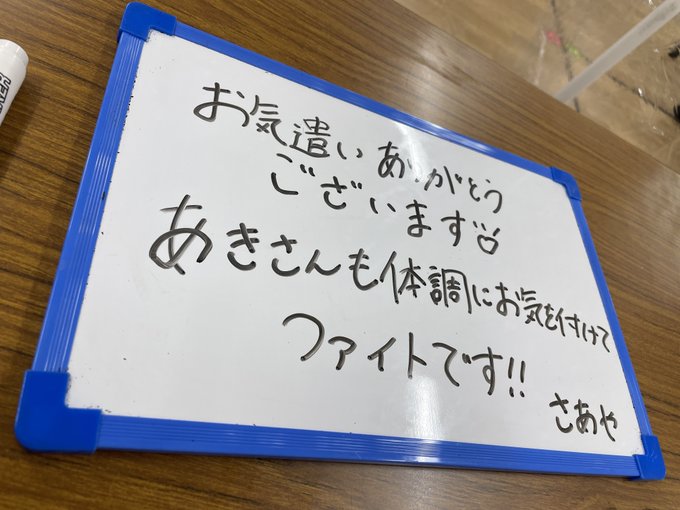 お気遣いありがとう
ございます
あきさんも体調にお気を付けて
ファイトです!!
さあや